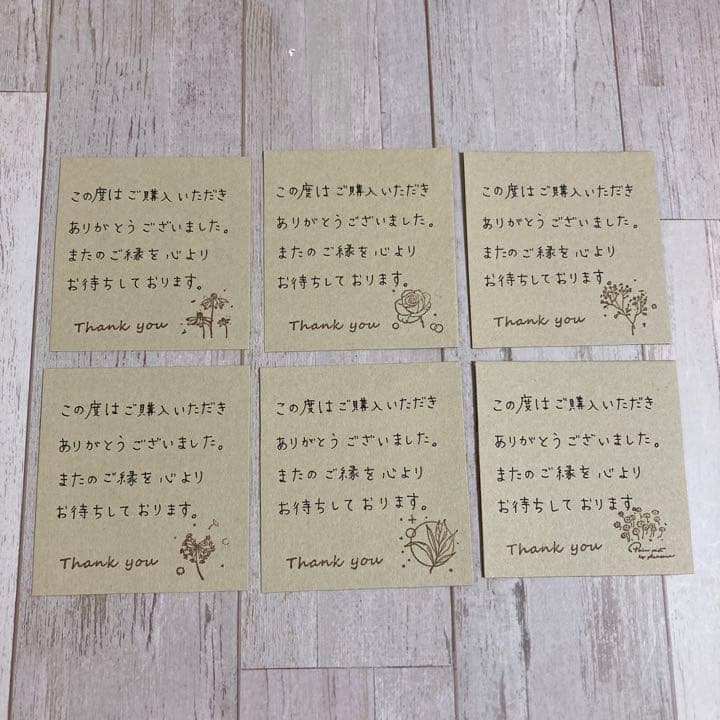 この度はご購入いただき
ありがとうございました。
またのご縁を心より
お待ちしております。
Thank you
この度はご購入いただき
ありがとうございました。
またのご縁を心より
お待ちしております。
Thank you
この度はご購入いただき
ありがとうございました。
またのご縁を心より
お待ちしております。
Thank you
この度はご購入いただき
ありがとうございました。
またのご縁を心より
お待ちしております。
Thank you
この度はご購入いただき
ありがとうございました。
またのご縁を心より
お待ちしております。
Thank you
この度はご購入いただき
ありがとうございました。
またのご縁を心より
お待ちしております。
Thank you